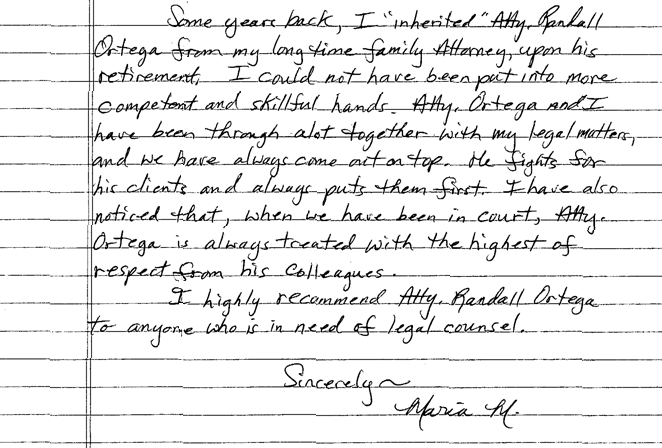 Some years back, I "inherited" Atty. Randall
Ortega from my long time family Attorney, upon his
retirement. I could not have been put into more
competent and skillful hands. Atty. Ortega and I
have been through alot together with my legal matters,
and we have always come out on top. He fights for
his clients and always puts them first. I have also
noticed that, when we have been in court, Atty.
Ortega is always treated with the highest of
respect from his colleagues.
I highly recommend Atty. Randall Ortega
to anyone who is in need of legal counsel.
Sincerely~
Maria M.